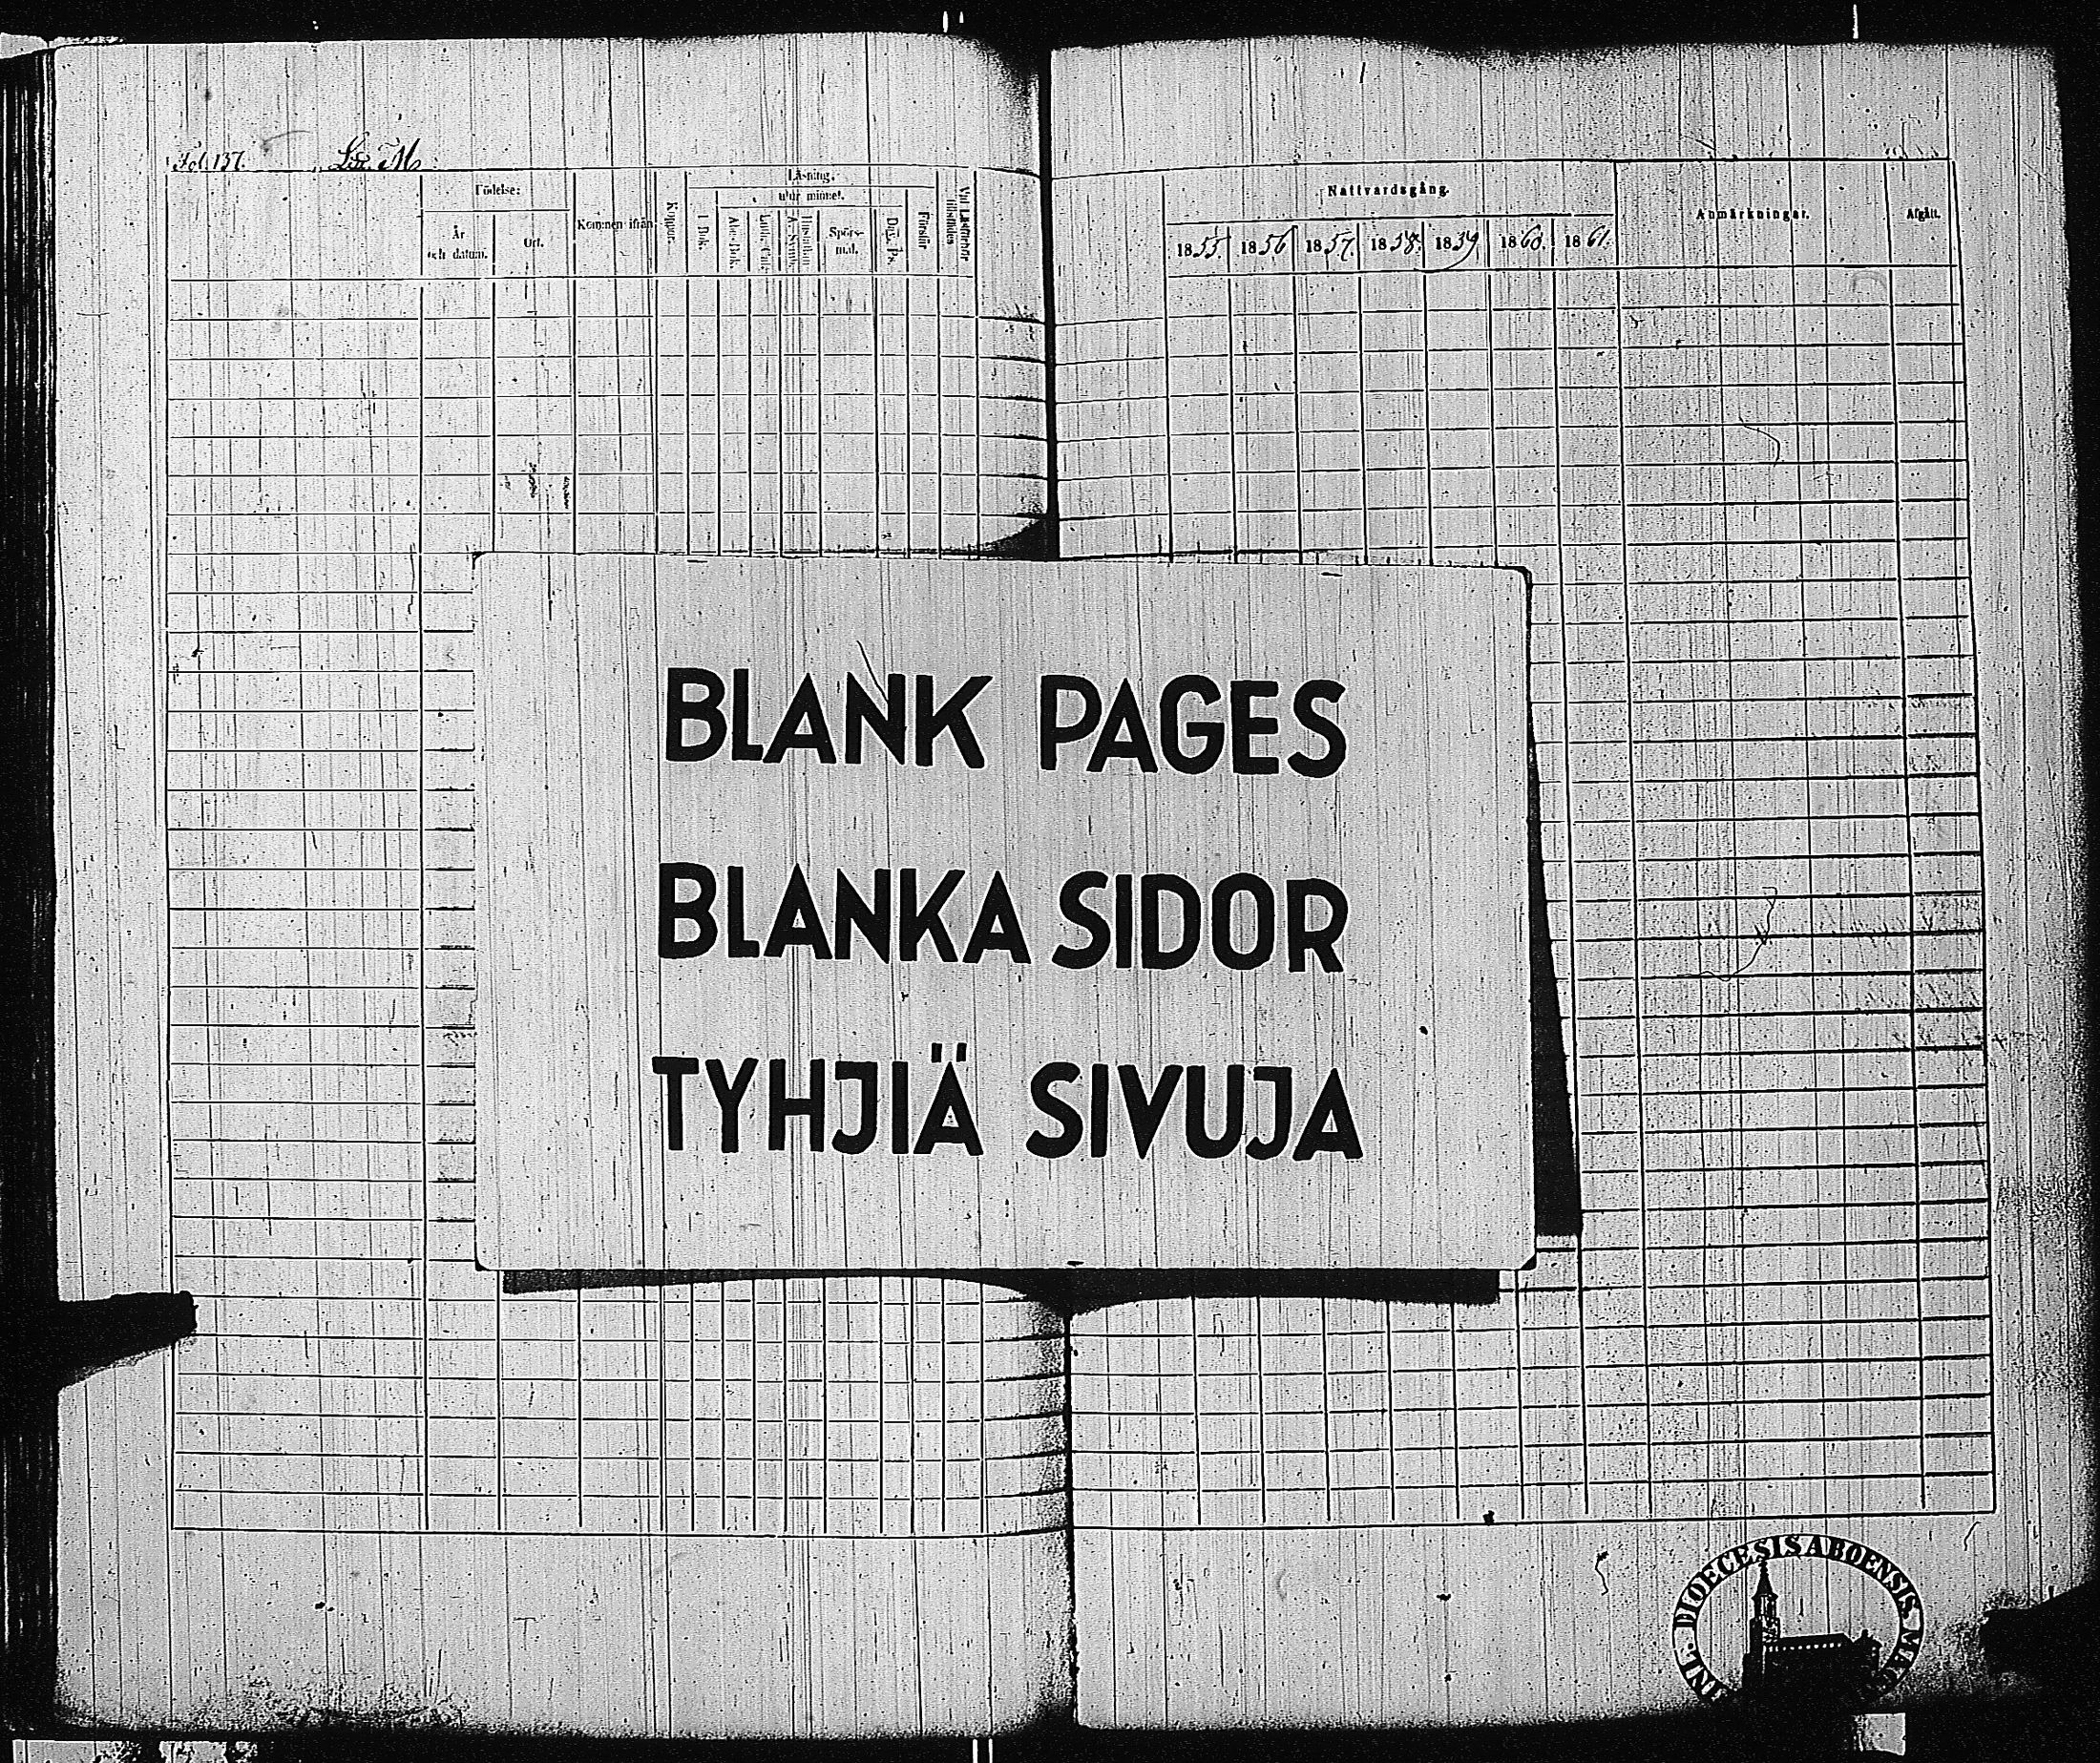 Fol. 137. Litt. M.
Födelse:
År och datum.
Ort.
Kommen ifrån
Koppor.
Läsning,
utur minnet.
I Bok.
Abc-Bok.
Spörsmål.
Dav. Ps.
Förstår
Vid Läsförhör tillstädes
Nattvardsgång.
1855. 1856 1857. 1858. 1859 1860. 1861.
Anmärkningar.
Afgått.
BLANK PAGES
BLANKA SIDOR
TYHJIÄ SIVUJA
DIOECESIS ABOENSIS